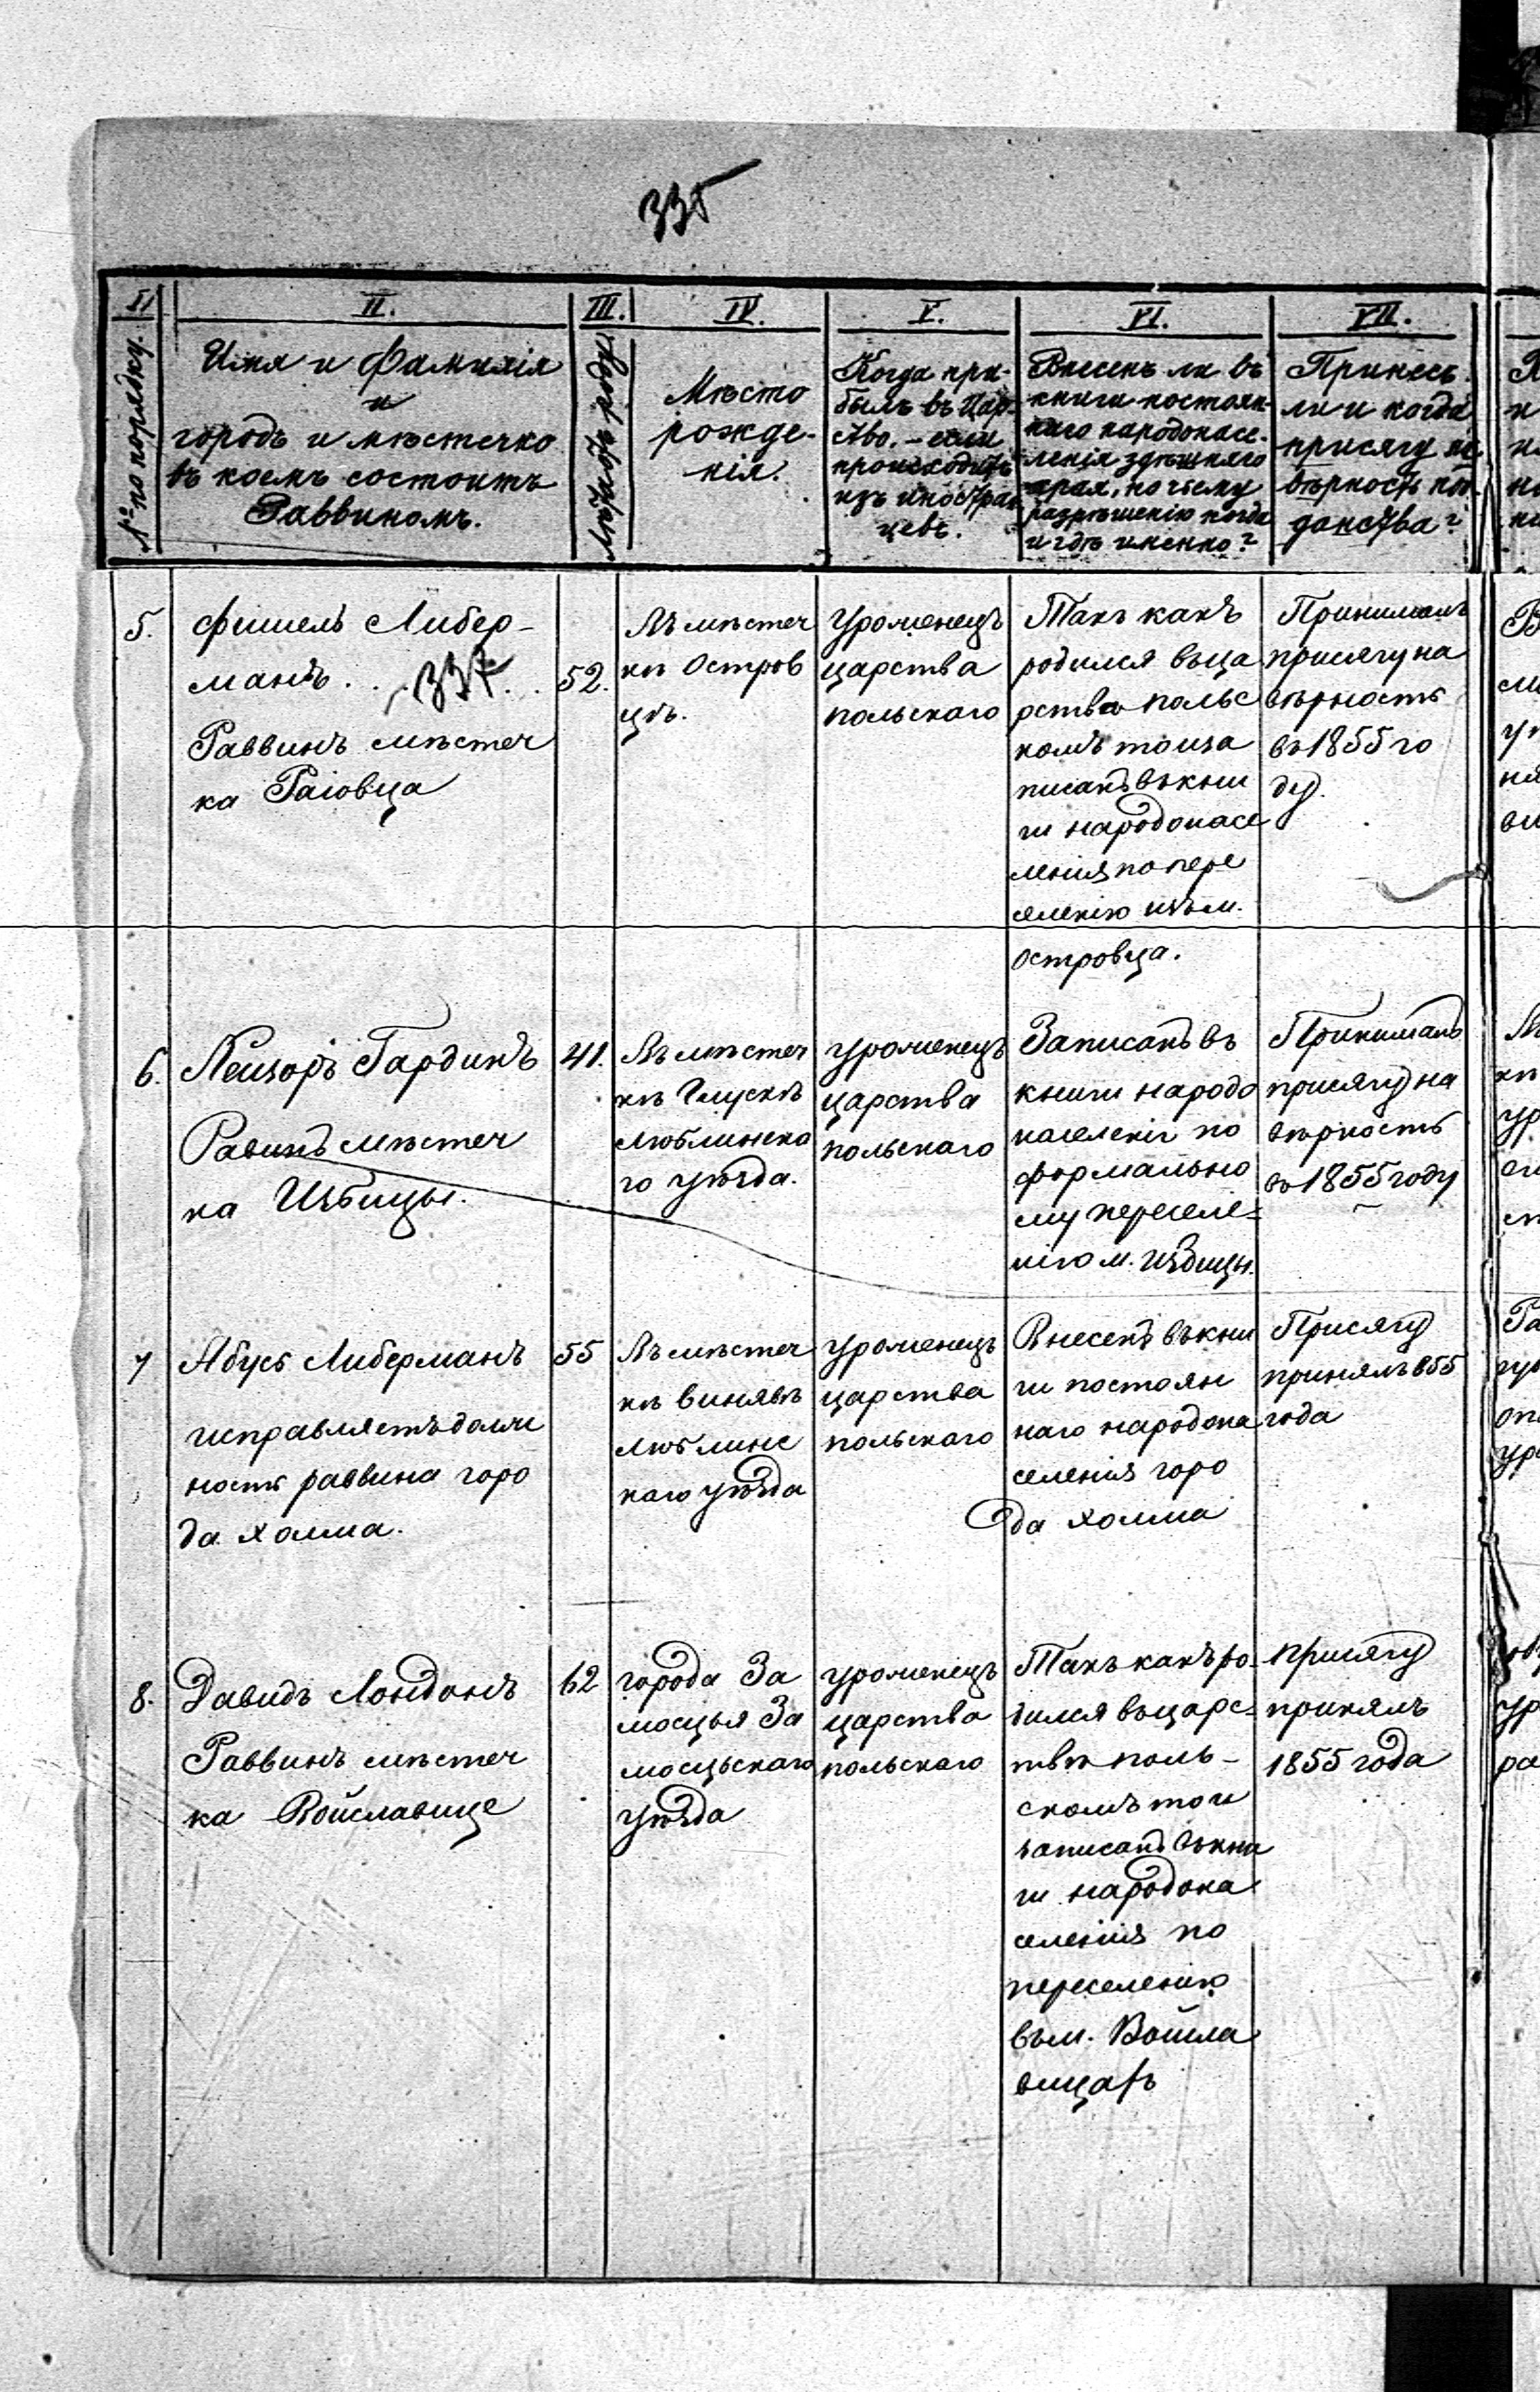 335
II.
III.
IV.
V.
VI.
VII.
№ по порядку.
Имя и Фамилія
и
городъ и мѣстечко
въ коемъ состоитъ
Раввиномъ.
Мѣсто
рожде-
нія.
Когда при-
былъ въ Цар-
ство, – если
происходитъ
изъ иностран
цевъ.
Внесенъ ли въ
книги постоян-
наго народонасе-
ленія здѣшняго
края, по чьему
разрѣшенію когда
и гдѣ именно?
Принесъ
ли и когда
присягу на
вѣрность под-
данства?
5.
Фишель Либер-
манъ . . 337 . .
Раввинъ мѣстеч
ка Раіовца
52.
Въ мѣстеч
кѣ Остров
цѣ.
Уроженецъ
царства
польскаго
Такъ какъ
родился въ ца
рствѣ польс
комъ то и за
писанъ въ кни
ги народонасе
ленія по пере
селенію изъ м.
Островца.
Принималъ
присягу на
вѣрность
въ 1855 го
ду.
6.
Лейзоръ Гардинъ
Равинъ мѣстеч
ка Избицы.
41.
Въ мѣстеч
кѣ Глускѣ
Люблинска
го уѣзда.
уроженецъ
царства
польскаго
Записанъ въ
книги народо
населенія по
формально
му переселе=
нію м. Избицы.
Принималъ
присягу на
вѣрность
въ 1855 году
7
Абусь Либерманъ
исправляетъ долж
ность раввина горо
да холма.
55
Въ мѣстеч
кѣ винявѣ
Люблинс
каго уѣзда
уроженецъ
царства
польскаго
Внесенъ въ кни
ги постоян
наго народона
селенія горо
да холма
Присягу
принялъ 855
года
8.
Давидъ Лондонъ
Раввинъ мѣстеч
ка Войславице
62
города За
мосцья За
мосцьскаго
уѣзда
уроженецъ
царства
польскаго
Такъ какъ ро-
дился въ царс=
твѣ поль-
скомъ то и
записанъ въ кни
ги народона
селенія по
переселенію
въ м. Войсла
вицахъ
Присягу
принялъ
1855 года